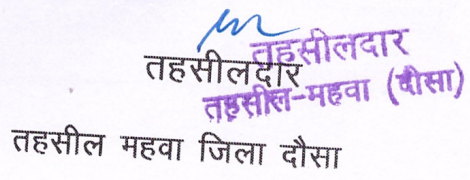 तहसीलदार
तहसीलदार
तहसील-महवा (दौसा)
तहसील महवा जिला दौसा